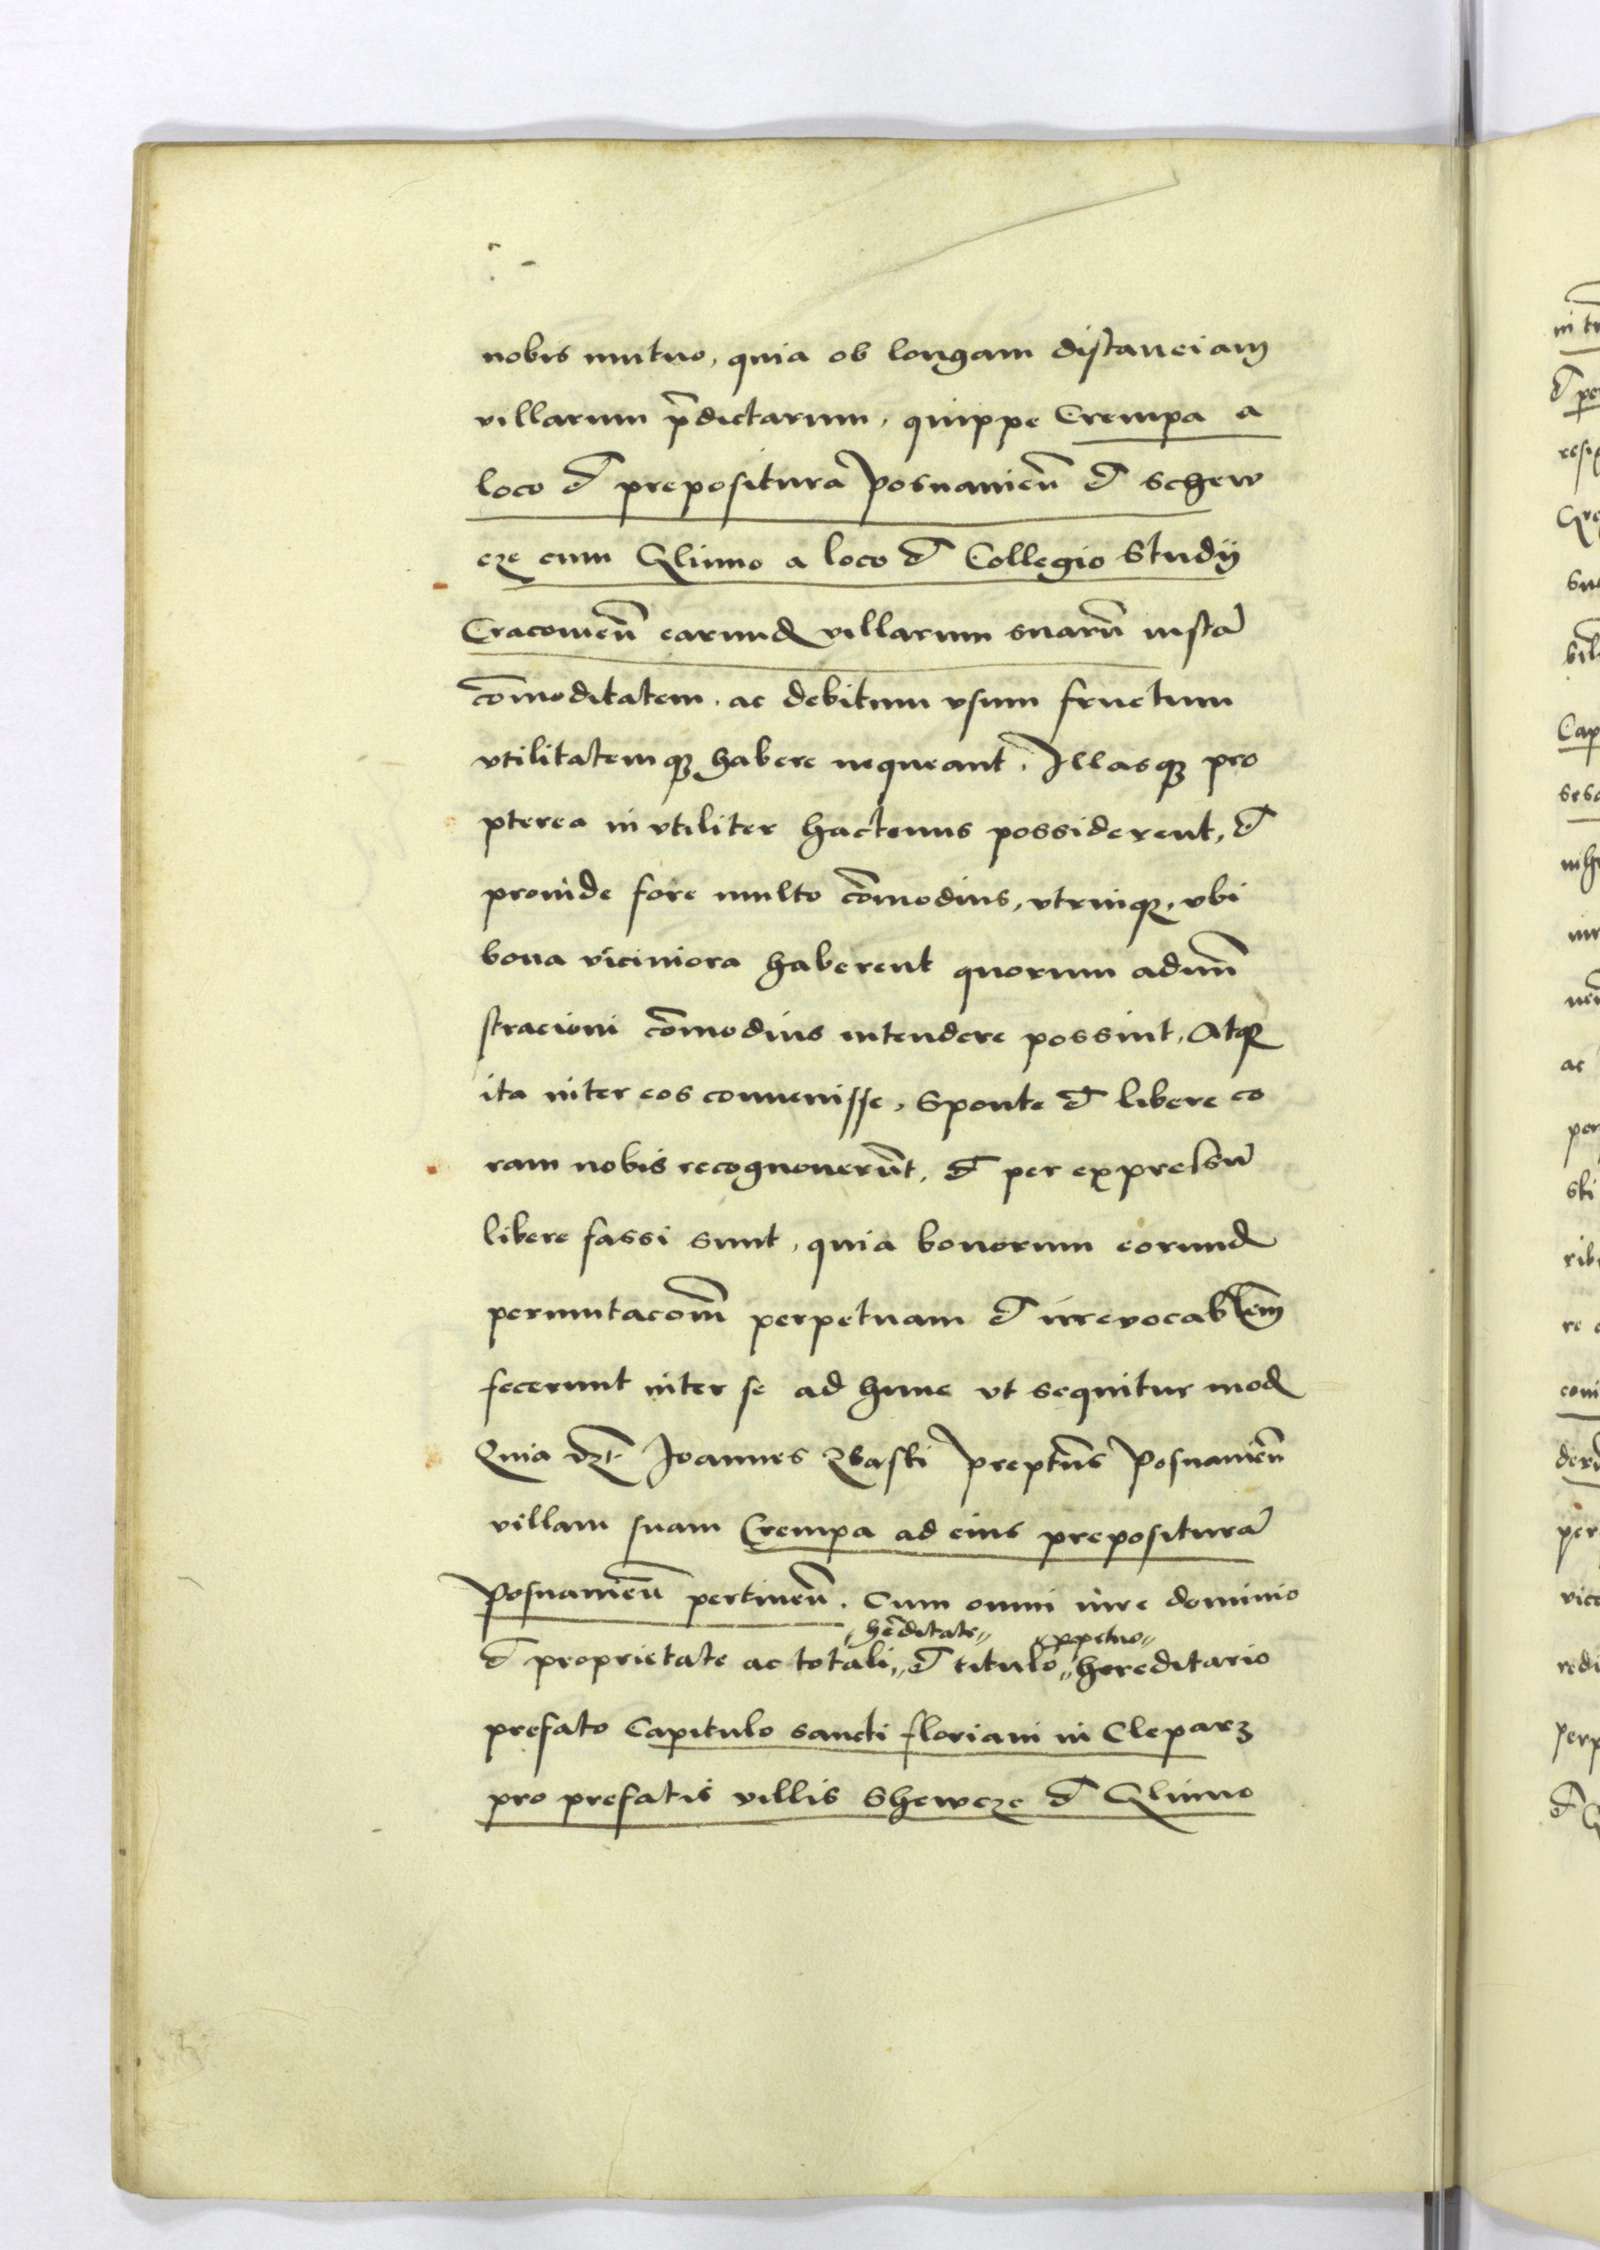 nobis mutuo, quia ob longam distanciam
villarum p̄dictarum, quippe Crempa a
loco et prepositura Posnanien̄ et schew
cze cum Glinno a loco et Collegio Studij
Cracovien̄ earund villarum suarū iustā
com̄oditatem, ac debitum vsum fructum
vtilitatemqꝫ habere nequeant. Illasqꝫ pro
pterea in vtiliter hactenus possiderent, et
proinde fore multo com̄odius, vtrinqꝫ, vbi
bona viciniora haberent quorum admī
stracioni com̄odius intendere possint, Atqꝫ
ita inter eos convenisse, Sponte et libere co
ram nobis recognoverūt, et per expressū
libere fassi sunt, quia bonorum eorund
permutacōm perpetuam et irrevocablēm
fecerunt inter se ad hunc vt sequitur mod
Quia Joannes Zbaski prept̄us Posnanien̄
villam suam Crempa ad eius prepositurā
Posnanien̄ pertinen̄. Cum omni iure dominio
„hēditate„ „ꝑpetuo„
et proprietate ac totali„ et titulo„ hereditario
prefato Capitulo sancti floriani in Cleparz
pro prefatis villis Shewcze et Glinno